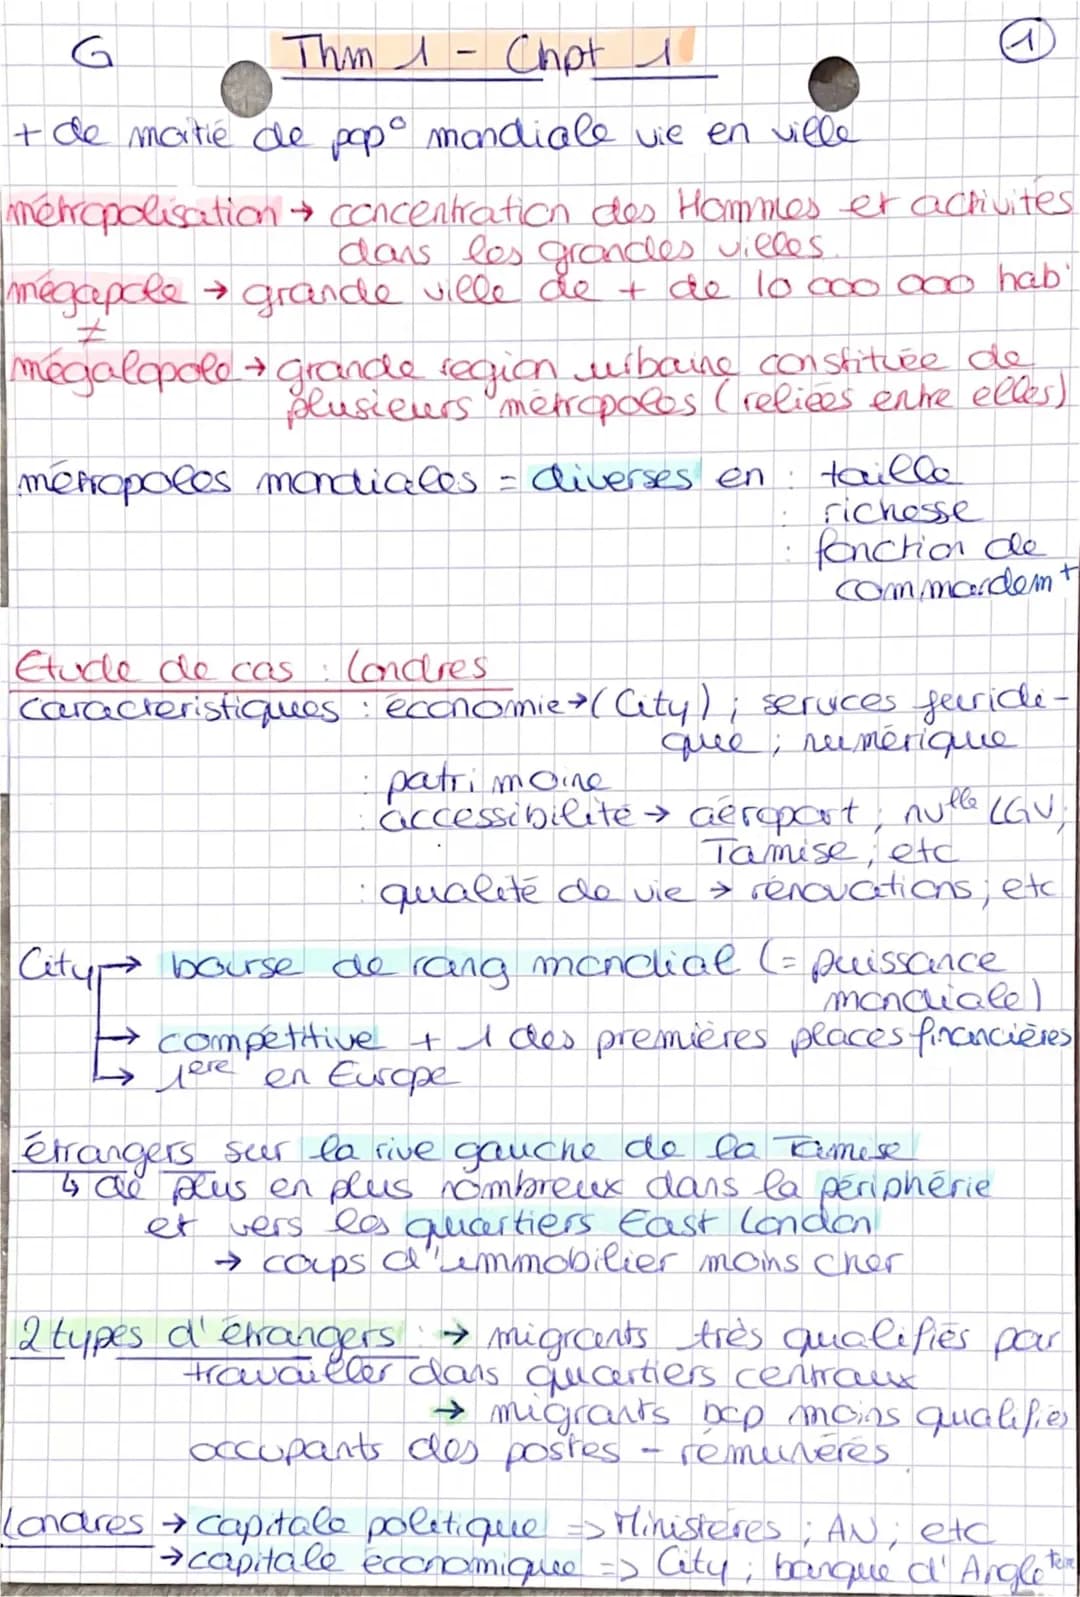 G Thm 1 - Chpt 1 1
+ de moitié de pop° mondiale vie en ville
métropolisation → concentration des Hommes et activités
dans les grandes villes.
mégapole → grande ville de + de 10 000 000 hab
≠
mégalopole → grande région urbaine constituée de
plusieurs métropoles (reliées entre elles)
métropoles mondiales = diverses en : taille
: richesse
: fonction de
commandem^t
Etude de cas : Londres
caractéristiques : économie → (City) ; services juridi-
que ; numérique
: patrimoine
: accessibilité → aéroport ; nvlle LGV ;
Tamise ; etc
: qualité de vie → rénovations ; etc
City → bourse de rang mondial (= puissance
mondiale)
→ compétitive + 1 des premières places financières
→ 1ère en Europe
étrangers sur la rive gauche de la Tamise
↳ de plus en plus nombreux dans la périphérie
et vers les quartiers East London
→ coups d'immobilier moins cher
2 types d'étrangers : → migrants très qualifiés par
travailler dans quartiers centraux
→ migrants bcp moins qualifiés
occupants des postes - rémunérés
Londres → capitale politique => Ministères ; AN ; etc
→ capitale économique => City ; banque d'Angleterre